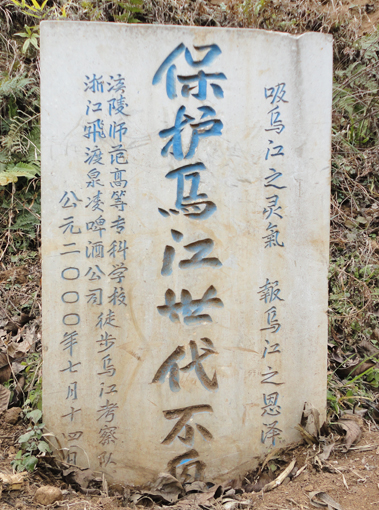 吸乌江之灵氣 報乌江之恩泽
保护乌江世代不
涪陵师范高等专科学校
浙江飛渡泉凌啤酒公司
徒步乌江考察队
公元二〇〇〇年七月十四日